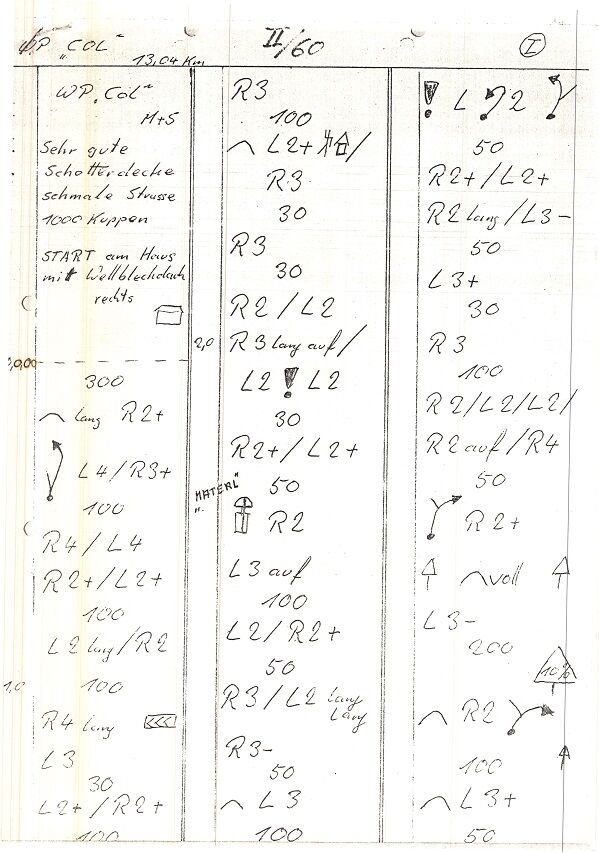 WP „COL“
13,04 Km
II/60
I
WP „COL“
M+S
Sehr gute
Schotterdecke
schmale Strasse
1000 Kuppen
START am Haus
mit Wellblechdach
rechts
0,00
300
lang R2+
L4/R3+
100
R4/L4
R2+/L2+
100
L2 lang/R2
1,0
100
R4 lang
<<<
L3
30
L2+/R2+
100
R3
100
L2+ /
R3
30
R3
30
R2/L2
2,0
R3 lang auf/
L2 ! L2
30
R2+/L2+
50
„MATERL“
R2
L3 auf
100
L2/R2+
50
R3/L2 lang
lang
R3-
50
L3
100
! L 2
50
R2+/L2+
R2 lang/L3-
50
L3+
30
R3
100
R2/L2/L2/
R2 auf/R4
50
R2+
voll
L3-
200
10%
R2
100
L3+
50